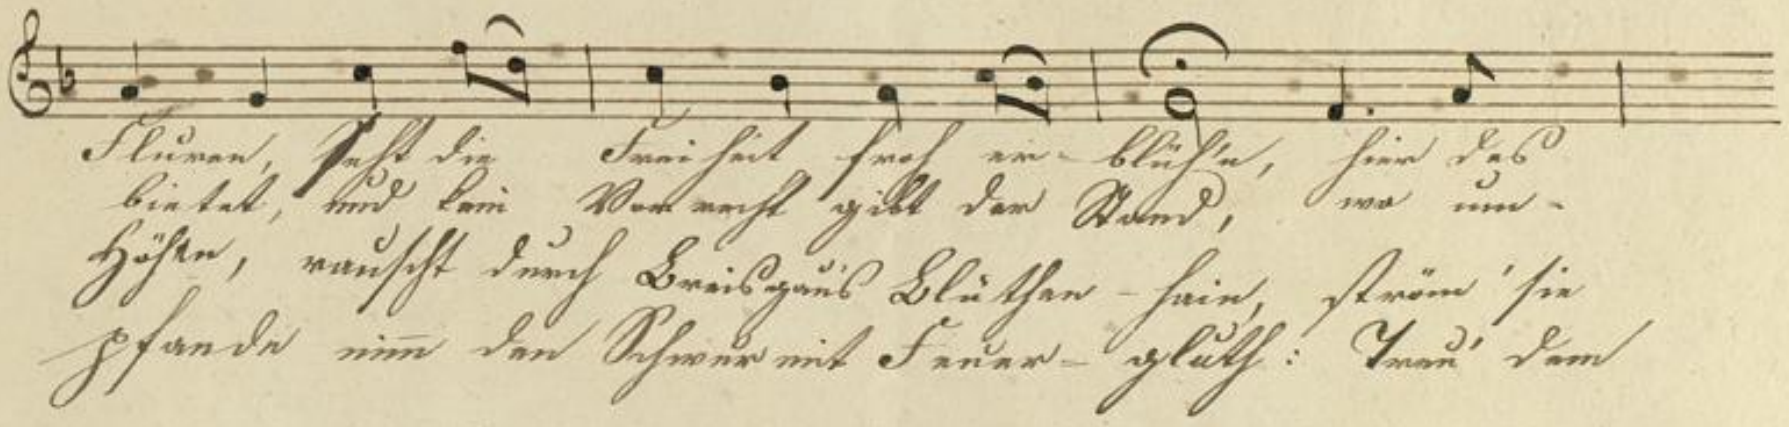 Fluren, seht die Freiheit froh er- blüh'n, hier des
bietet, und kein Vorrecht gibt der Stand, wo um-
Höhen, rauscht durch Breisgau's Blüthen-hain, ström' sie
pfande nim̅ den Schwur mit Feuer-gluth: Treu' dem